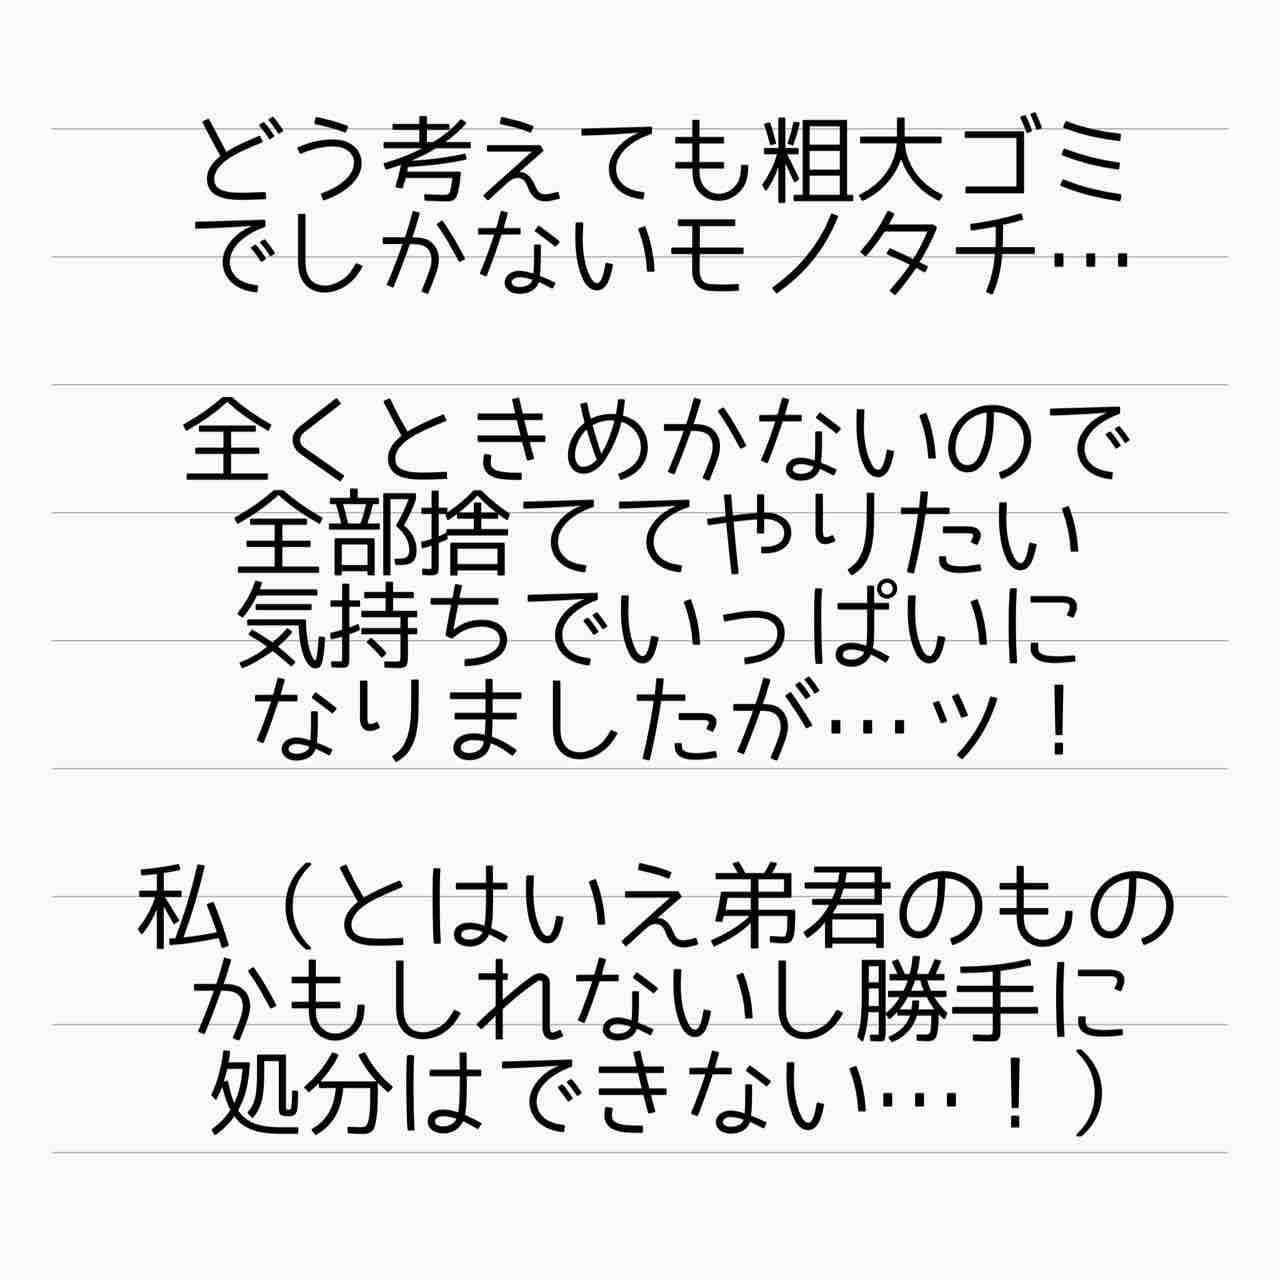 どう考えても粗大ゴミ
でしかないモノタチ…
全くときめかないので
全部捨ててやりたい
気持ちでいっぱいに
なりましたが…ッ！
私（とはいえ弟君のもの
かもしれないし勝手に
処分はできない…！）